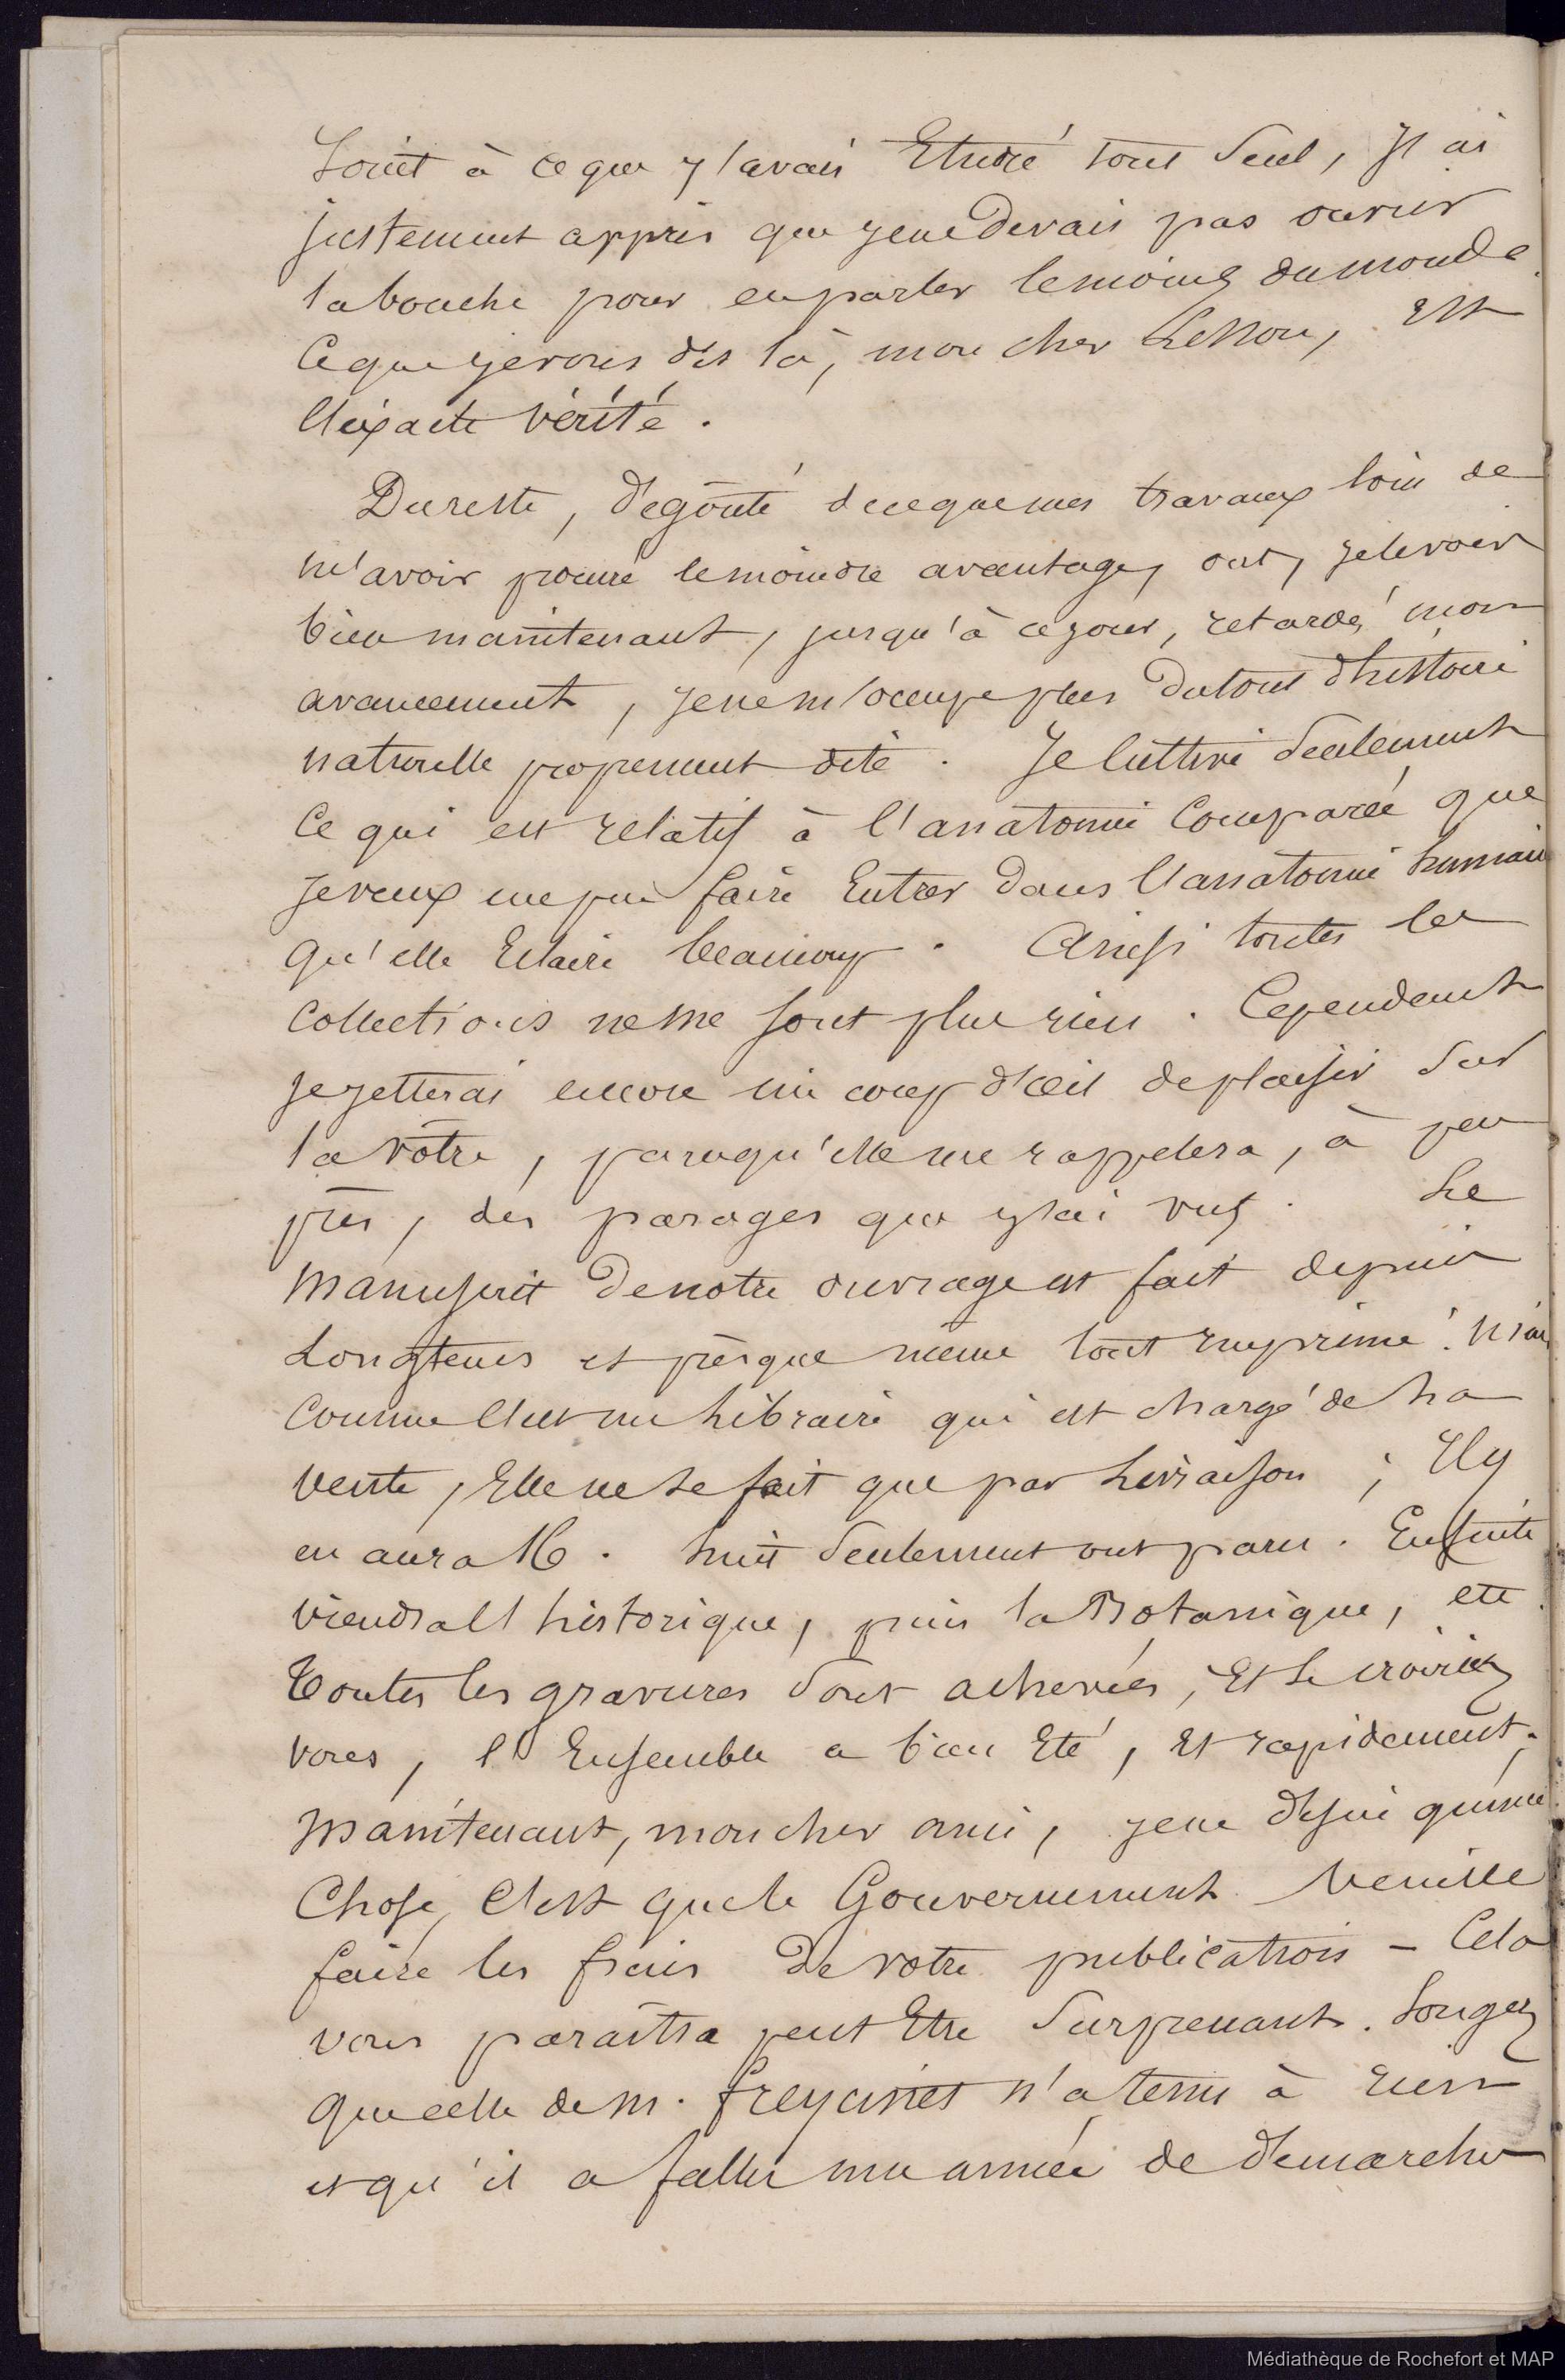 Souit à ce que j'avais Etudié tout Seul, J'ai
justement appris que je ne devais pas ouvrir
la bouche pour en parler le moins du monde.
Ce que je vous dis là, mon cher Lesson, est
l'éxacte vérité.
Du reste, dégôuté de ce que mes travaux loin de
m'avoir procuré le moindre avantage, ont, je le vois
bien maintenant, jusqu'à ce jour, retardé mon
avancement, je ne m'occupe plus du tout d'histoire
naturelle proprement dite. Je cultive Seulement
Ce qui est relatif à l'anatomie Comparée que
je veux un peu faire Entrer dans l'anatomie humaine
qu'elle Eclaire beaucoup. Ainsi toutes les
Collections ne me sont plus rien. Cependant
je jetterai encore un coup d'œil de plaisir Sur
la vôtre, parcequ'elle me rappelera, à peu
près, des parages que j'ai vus. Le
Manuscrit de notre ouvrage est fait depuis
Longtems et prèsque même tout imprimé. Mais
Comme C'est un Libraire qui est chargé de La
vente, Elle ne Se fait que par Livraison; Il y
en aura 16. huit Seulement ont paru. Ensuite
viendra l'historique, puis la Botanique, etc.
Toutes les gravures Sont achevées, Et le croiriez
vous, l'Ensemble a bien Eté, Et rapidement.
Maintenant, mon cher ami, je ne désire qu'une
Chose, C'est que le Gouvernement veuille
faire les frais de votre publication - Cela
vous paraîtra peut Etre Surprenant. Songez
que celle de M. freycinet n'a tenu à rien
et qu'il a fallu une année de démarches
Médiathèque de Rochefort et MAP